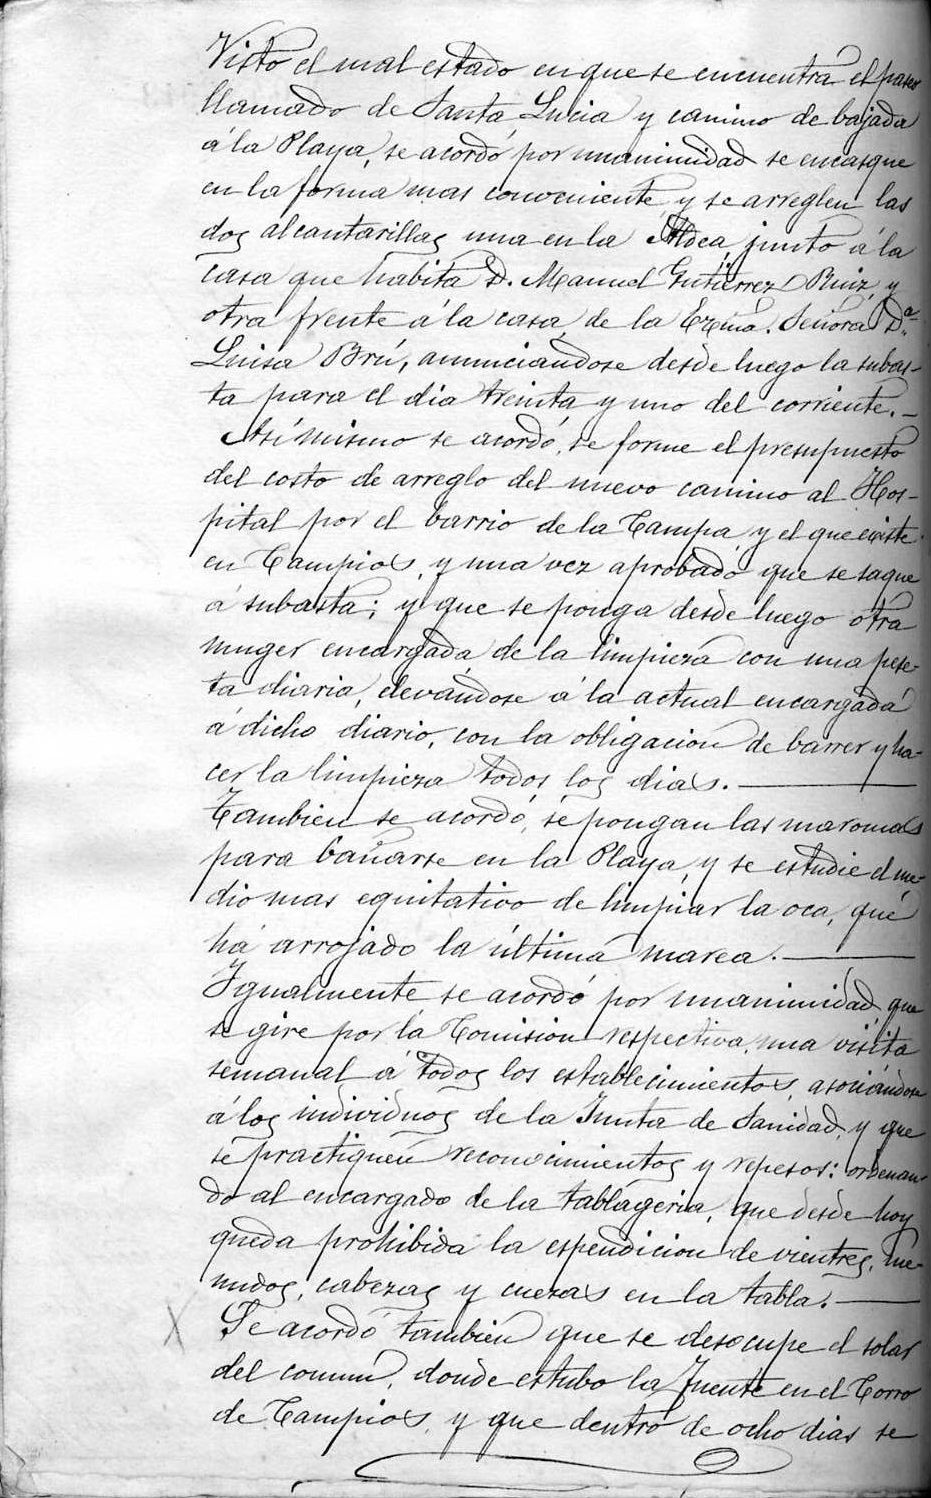 Visto el mal estado en que se encuentra el paseo
llamado de Santa Lucia y camino de bajada
á la Playa, se acordó por unanimidad se encasque
en la forma mas conveniente y se arreglen las
dos alcantarillas una en la Aldea, junto á la
casa que habita D. Manuel Gutierrez Ruiz, y
otra frente á la casa de la Ezcma. Señora D.ª
Luisa Brú, anunciandose desde luego la subas-
ta para el dia treinta y uno del corriente. _
Asímismo se acordó, se forme el presupuesto
del costo de arreglo del nuevo camino al Hos-
pital por el barrio de la Campa y el que existe
en Campios, y una vez aprobado que se saque
á subasta; y que se ponga desde luego otra
muger encargada de la limpieza con una pese-
ta diaria, elevándose á la actual encargada
á dicho diario, con la obligacion de barrer y ha-
cer la limpieza todos los dias. ___
Tambien se acordó, se pongan las maromas
para bañarse en la Playa, y se estudie el me-
dio mas equitativo de limpiar la oca, que
há arrojado la última marea. ___
Igualmente se acordó por unanimidad que
se gire por la Comision respectiva, una visita
semanal á todos los establecimientos, asociándose
á los individuos de la Junta de Sanidad, y que
se practiquen reconocimientos y repesos: ordenan-
do al encargado de la tablageria, que desde hoy
queda prohibida la espendicion de vientres, me-
nudos, cabezas y cueras en la tabla. ___
X Se acordó tambien que se desocupe el solar
del comun, donde estubo la fuente en el Corro
de Campios, y que dentro de ocho dias se